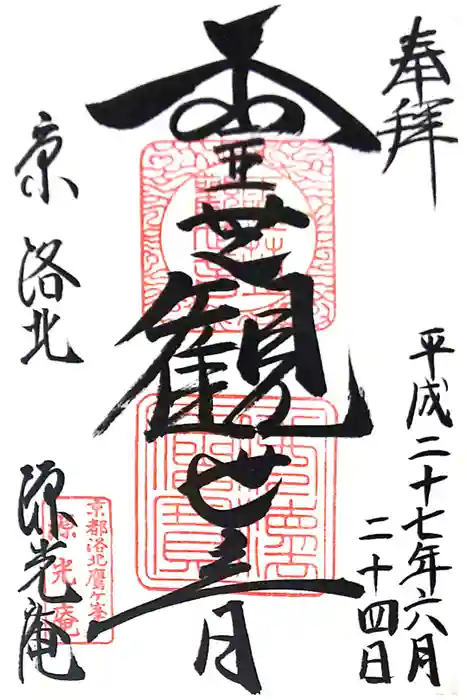 奉拝
平成二十七年六月
二十四日
霊芝觀世音
京 洛北 源光庵
京都洛北鷹ケ峯
源光庵